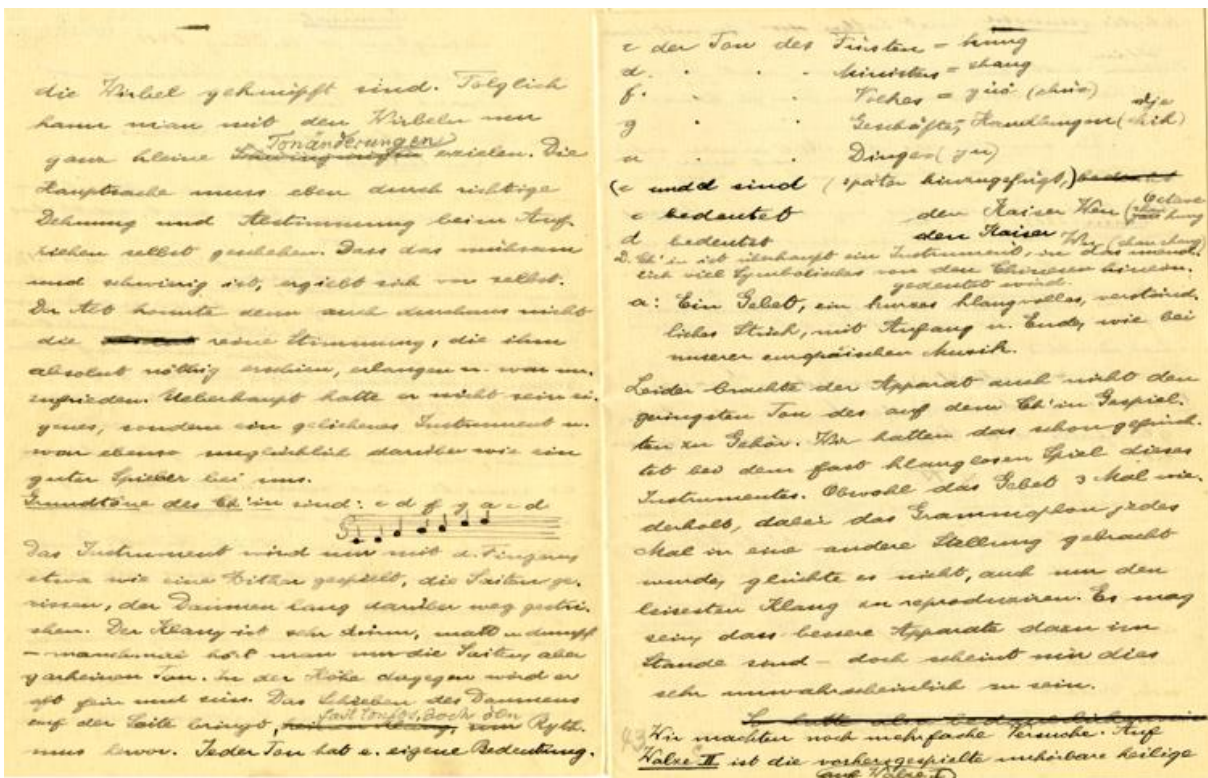 die Wirbel geknüpft sind. Folglich
kann man mit den Wirbeln nur
Tonänderungen
ganz kleine erzielen. Die
Hauptsache muss eben durch richtige
Dehnung und Abstimmung beim Auf-
ziehen selbst geschehen. Dass das mühsam
und schwierig ist, ergiebt sich von selbst.
Der Alt konnte denn auch durchaus nicht
die reine Stimmung, die ihm
absolut nöthig erschien, erlangen u. war un-
zufrieden. Ueberhaupt hatte er nicht sein ei-
genes, sondern ein geliehenes Instrument u.
war ebenso unglücklich darüber wie ein
guter Spieler bei uns.
Grundtöne des Ch'in sind: c d f g a c d
Das Instrument wird nur mit d. Fingern
etwa wie eine Zither gespielt, die Saiten ge-
rissen, der Daumen lang darüber weg gestri-
chen. Der Klang ist sehr dünn, matt u. dumpf
– manchmal hört man nur die Saiten, aber
garkeinen Ton. In der Höhe dagegen wird er
oft fein und süss. Das Schieben des Daumens
fast tonlos, doch den
auf der Saite bringt, Ryth-
mus hervor. Jeder Ton hat e. eigene Bedeutung.
c der Ton des Fürsten = kung
d. " " Ministers = shang
f. " " Volkes = yüo (chüo)
g " " Geschäfte, Handlungen (chih)
a " " Dinge (yü)
(c und d sind (später hinzugefügt,) bedeutet
c bedeutet den Kaiser Wen (Octave kung
d bedeutet den Kaiser Wu (shao shang)
D. Ch'in ist überhaupt ein Instrument, in das unend-
lich viel Symbolisches von den Chinesen hinein-
gedeutet wird.
a: Ein Gebet, ein kurzes klangvolles, verständ-
liches Stück, mit Anfang u. Ende, wie bei
unserer europäischen Musik.
Leider brachte der Apparat auch nicht den
geringsten Ton des auf dem Ch'in Gespiel-
ten zu Gehör. Wir hatten das schon gefürch-
tet bei dem fast klanglosen Spiel dieses
Instrumentes. Obwohl das Gebet 3 Mal wie-
derholt, dabei das Grammophon jedes
Mal in eine andere Stellung gebracht
wurde, glückte es nicht, auch nur den
leisesten Klang zu reproduziren. Es mag
sein, dass bessere Apparate dazu im
Stande sind – doch scheint mir dies
sehr unwahrscheinlich zu sein.
Wir machten noch mehrfache Versuche. Auf
Walze II ist die vorhergespielte unhörbare heilige
(auf Walze I)